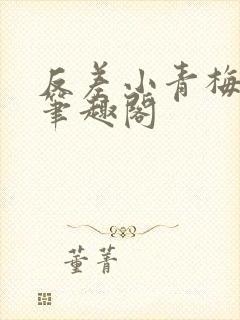 反差小青梅
笔趣阁
董菁